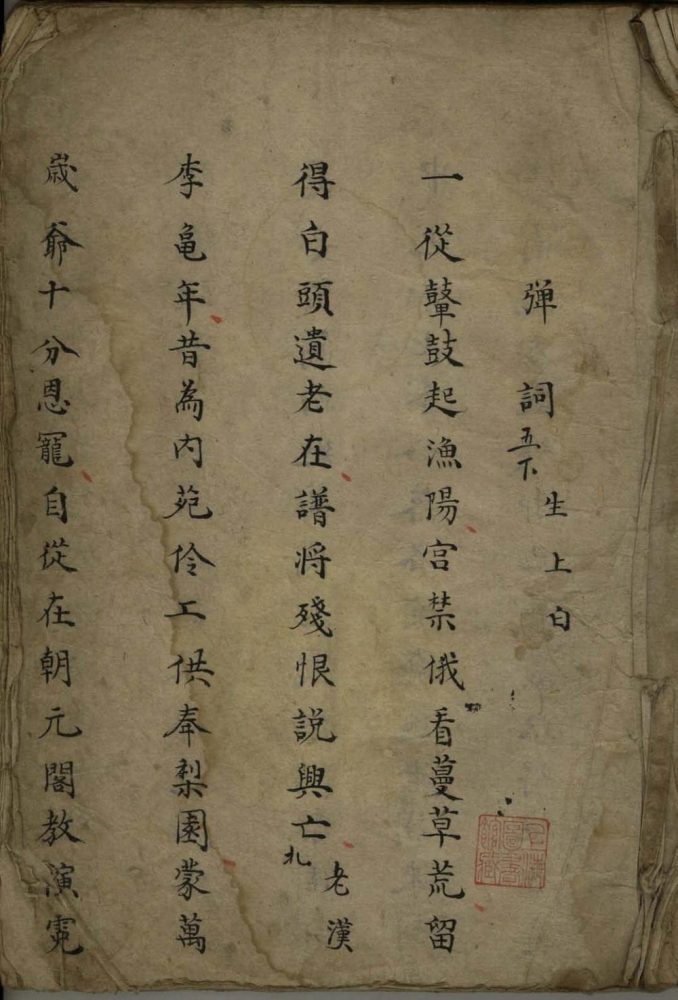 弹詞 五下 生上白
一從鼙鼓起漁陽宫禁俄看蔓草荒留
得白頭遺老在譜將殘恨説興亡 北 老漢
李龜年昔為内苑伶工供奉梨園蒙萬
歲爺十分恩寵自從在朝元閣教演霓